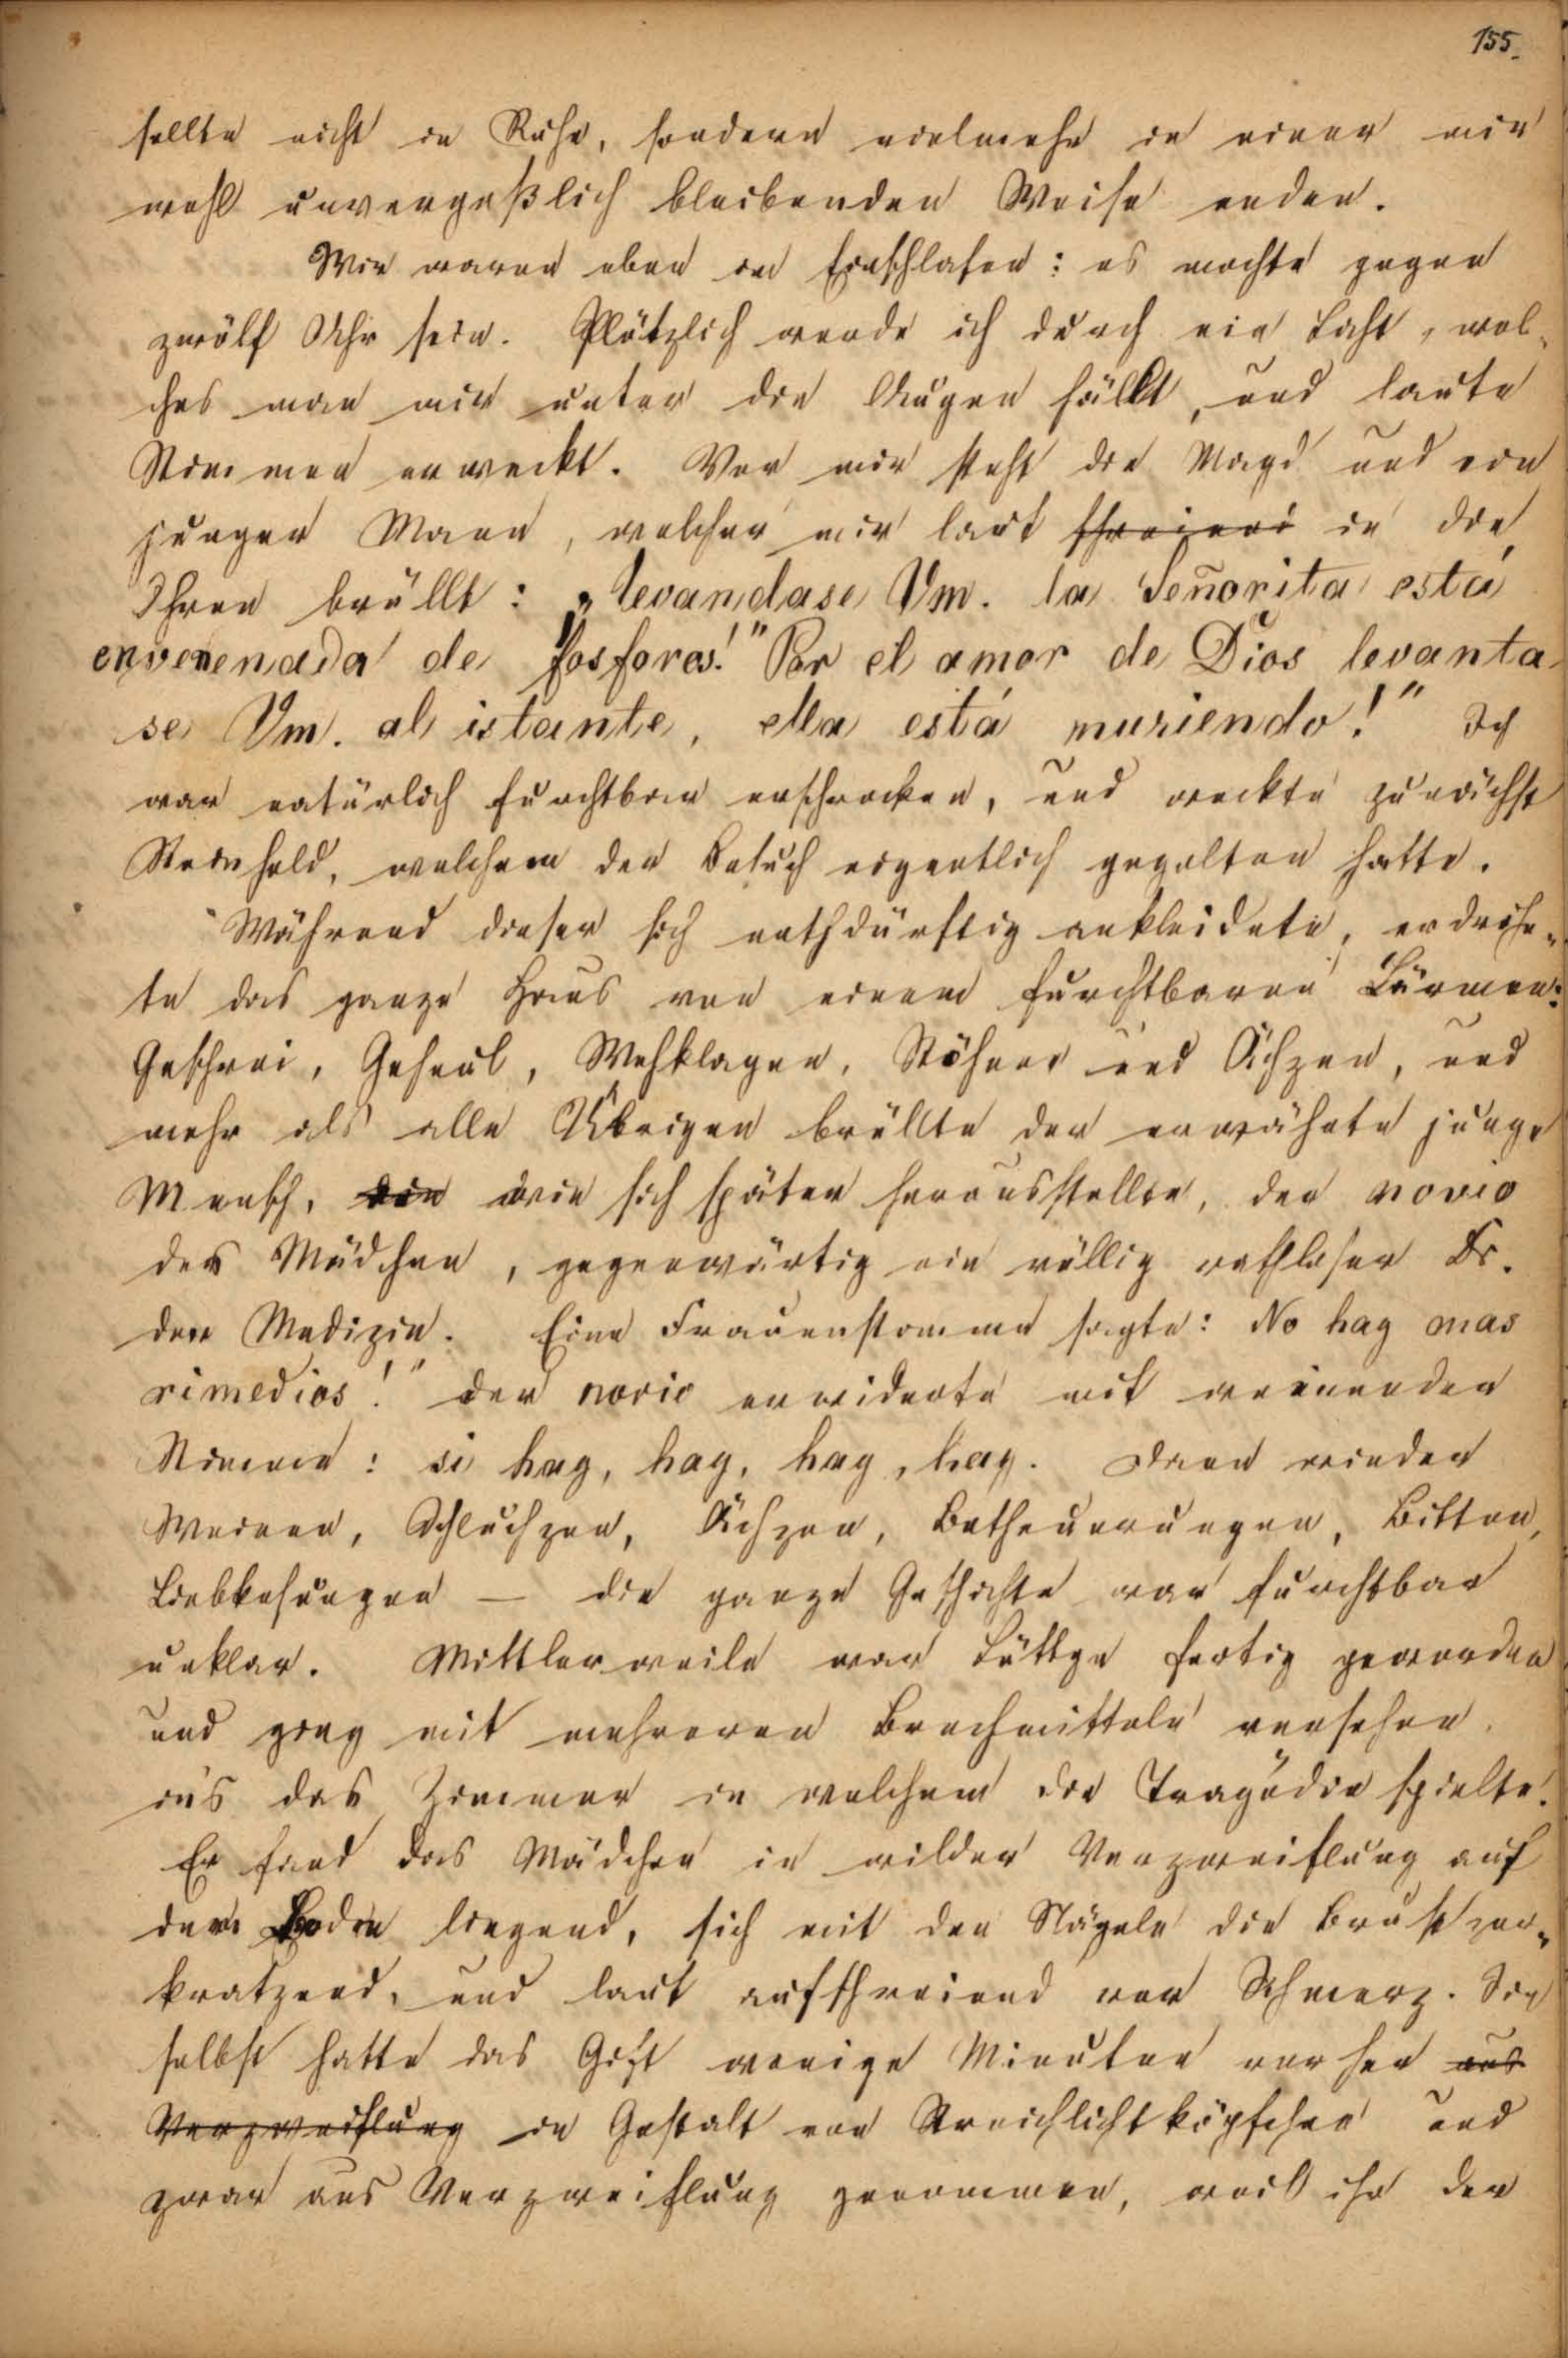 155.
sollte nicht in Ruhe, sondern vielmehr in einer mir
wohl unvergeßlich bleibenden Weise enden.
Wir waren eben im Einschlafen: es mochte gegen
zwölf Uhr sein. Plötzlich werde ich durch ein Licht, wel-
ches man mir unter die Augen hällt, und laute
Stimmen erweckt. Vor mir steht die Magd und ein
junger Mann, welcher mir laut schreiend in die
Ohren brüllt: „levandase Vm. la Señorita está
envenenada de fosforos!" Por el amor de Dios levanta
se Vm. al istante, ella está muriendo!" Ich
war natürlich furchtbar erschrocken, und weckte zunächst
Reinhold, welchem der Besuch eigentlich gegolten hatte.
Während dieser sich nothdürftig ankleidete, erdröhn-
te das ganze Haus von einem furchtbaren Lärmen:
Geschrei, Geheul, Wehklagen, Stöhnen und Ächzen, und
mehr als alle Übrigen brüllte der erwähnte junge
Mensch, die wie sich später herausstellte, der novio
des Mädchen, gegenwärtig ein völlig rathloser Dr.
der Medizin. Eine Frauenstimme sagte: No hay mas
rimedios!" der novio erwiderte mit weinender
Stimme: si hay, hay, hay, hay. Dann wieder
Weinen, Schluchzen, Ächzen, Betheuerungen, Bitten,
Liebkosungen — die ganze Geschichte war furchtbar
unklar. Mittlerweile war Lüttge fertig geworden
und ging mit mehreren Brechmitteln versehen
in's das Zimmer in welchem die Tragödie spielte.
Er fand das Mädchen in wilder Verzweiflung auf
dem Boden liegend, sich mit den Nägeln die Brust zer-
kratzend, und laut aufschreiend vor Schmerz. Sie
selbst hatte das Gift wenige Minuten vorher aus
Verzweiflung in Gestalt von Streichlichtköpfchen und
zwar aus Verzweiflung genommen, weil ihr der